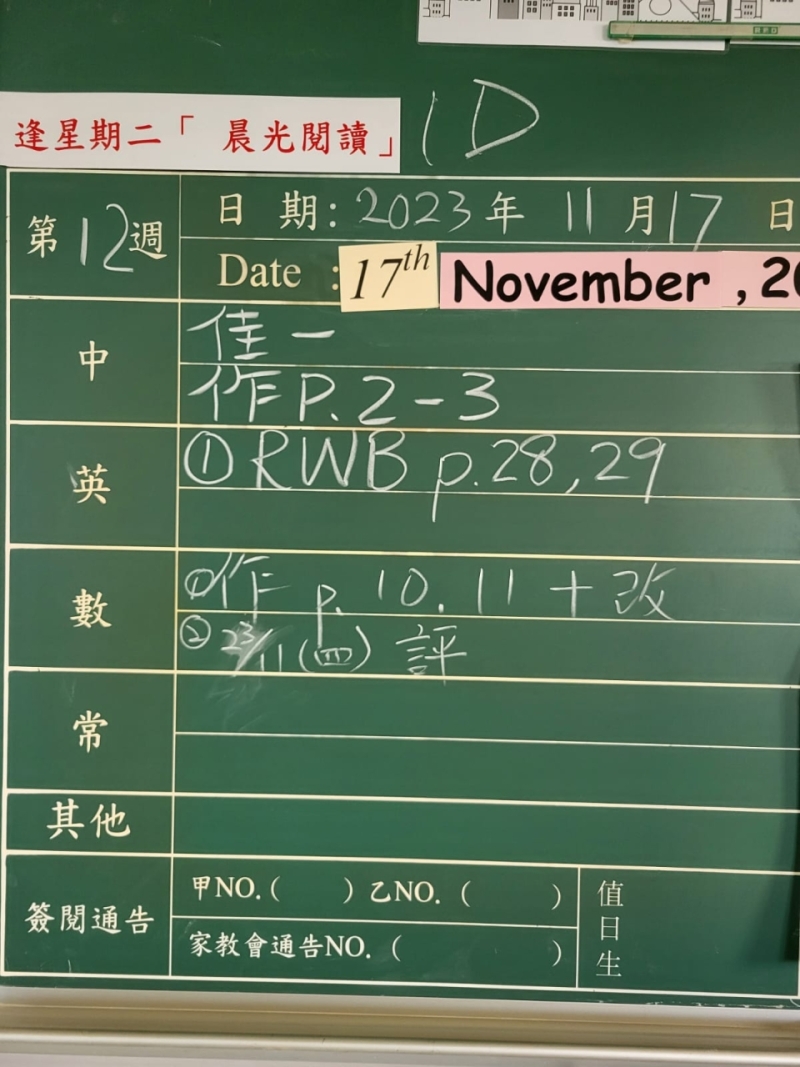 逢星期二「 晨光閱讀」 1D
第12週
日 期: 2023年 11月17日
Date : 17th November , 20
中
佳一
作P.2-3
英
①RWB p.28,29
數
①作 p. 10. 11 + 改
② 23/11(四) 評
常
其他
簽閱通告
甲NO.( ) 乙NO. ( )
家教會通告NO. ( )
值日生